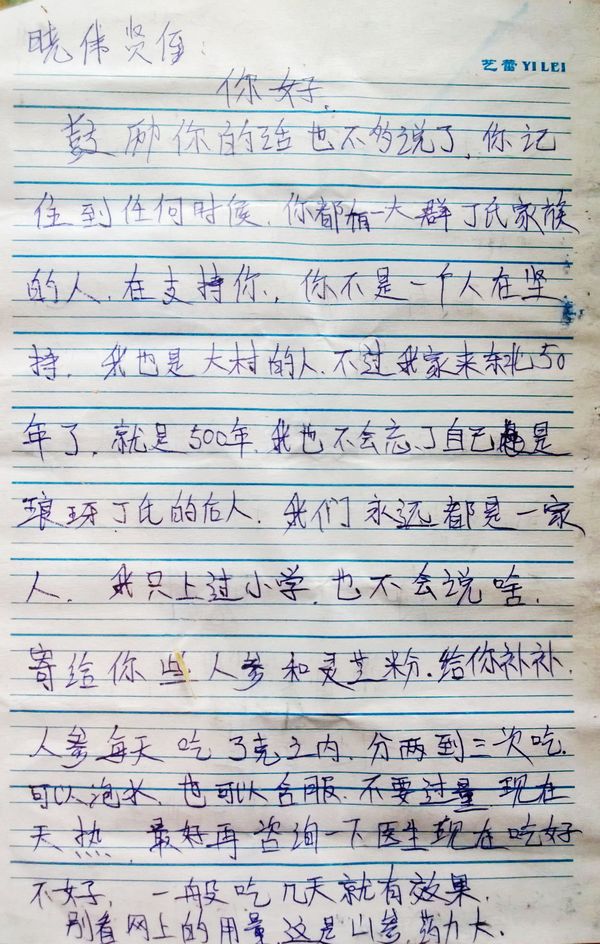 晓伟贤侄：
艺蕾 YI LEI
你好.
鼓励你的话也不多说了，你记
住到任何时候，你都有一大群丁氏家族
的人，在支持你，你不是一个人在坚
持，我也是大村的人，不过我家来东北50
年了，就是500年，我也不会忘了自己是
琅玡丁氏的后人，我们永远都是一家
人，我只上过小学，也不会说啥，
寄给你些人参和灵芝粉，给你补补，
人参每天吃3克之内，分两到三次吃，
可以泡水，也可以含服，不要过量，现在
天热，最好再咨询一下医生现在吃好
不好，一般吃几天就有效果，
别看网上的用量，这是山参，药力大.